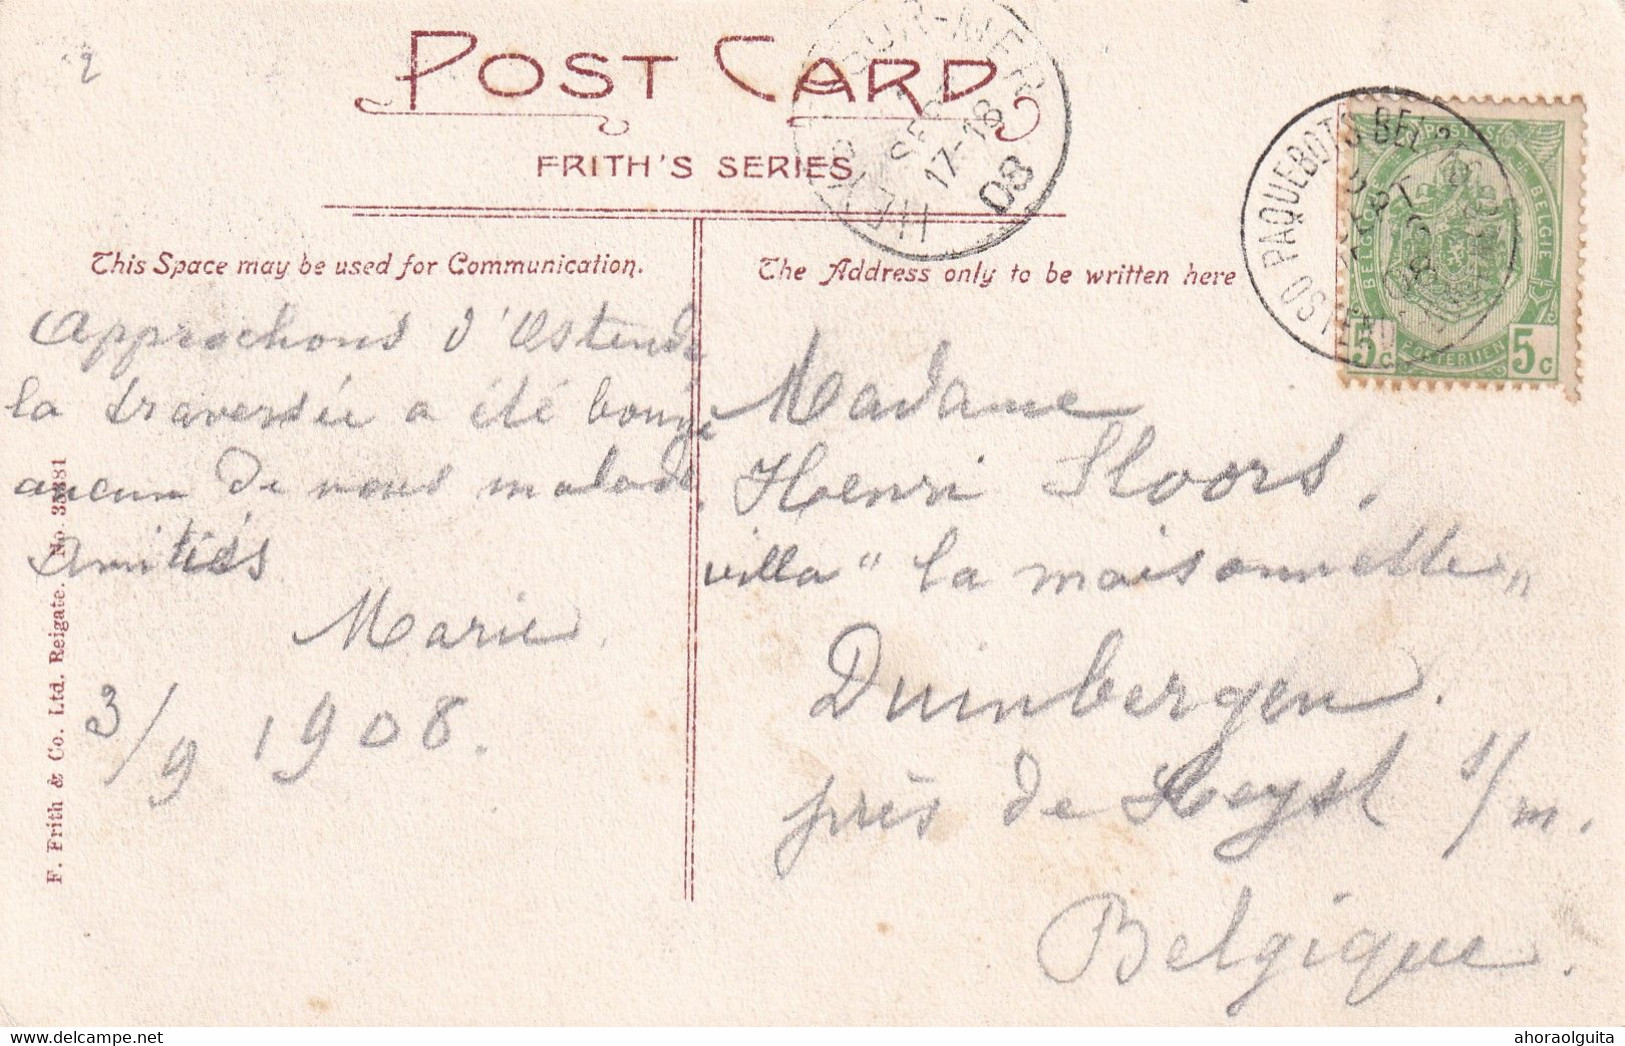 2
POST CARD
FRITH'S SERIES
HEYST SUR-MER
SEPT
17-18
08
PAQUEBOTS BEL
SEPT
08
POSTES
BELGIQUE BELGIE
POSTERIJEN
5c 5c
This Space may be used for Communication.
The Address only to be written here
Approchons d'Ostende
la traversée a été bougé
aucun de nous malade.
Amitiés
Marie.
3/9 1908.
Madame
Henri Sloors.
villa "la maisonnette"
Duinbergen.
près de Heyst s/m.
Belgique.
F. Frith & Co. Ltd. Reigate. No. 35381
ahoraolguita